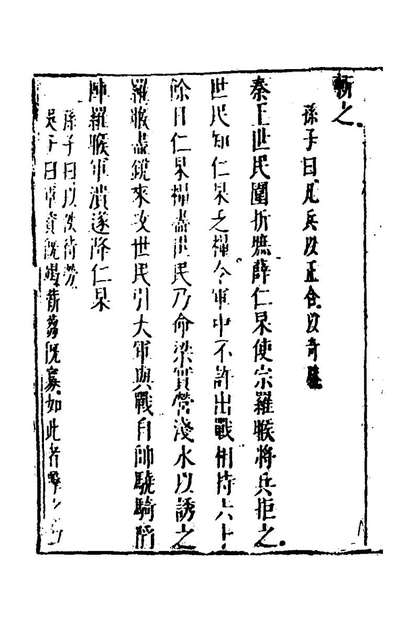 斬之
孫子曰凡兵以正合以奇勝
秦王世民圍折墌薛仁杲使宗羅睺將兵拒之
世民知仁杲乏糧令軍中不許出戰相持六十
餘日仁杲糧盡世民乃命梁實營淺水以誘之
羅睺盡銳來攻世民引大軍與戰自帥驍騎陷
陣羅睺軍潰遂降仁杲
孫子曰以佚待勞
吳子曰軍資既竭薪芻既寡如此者擊之